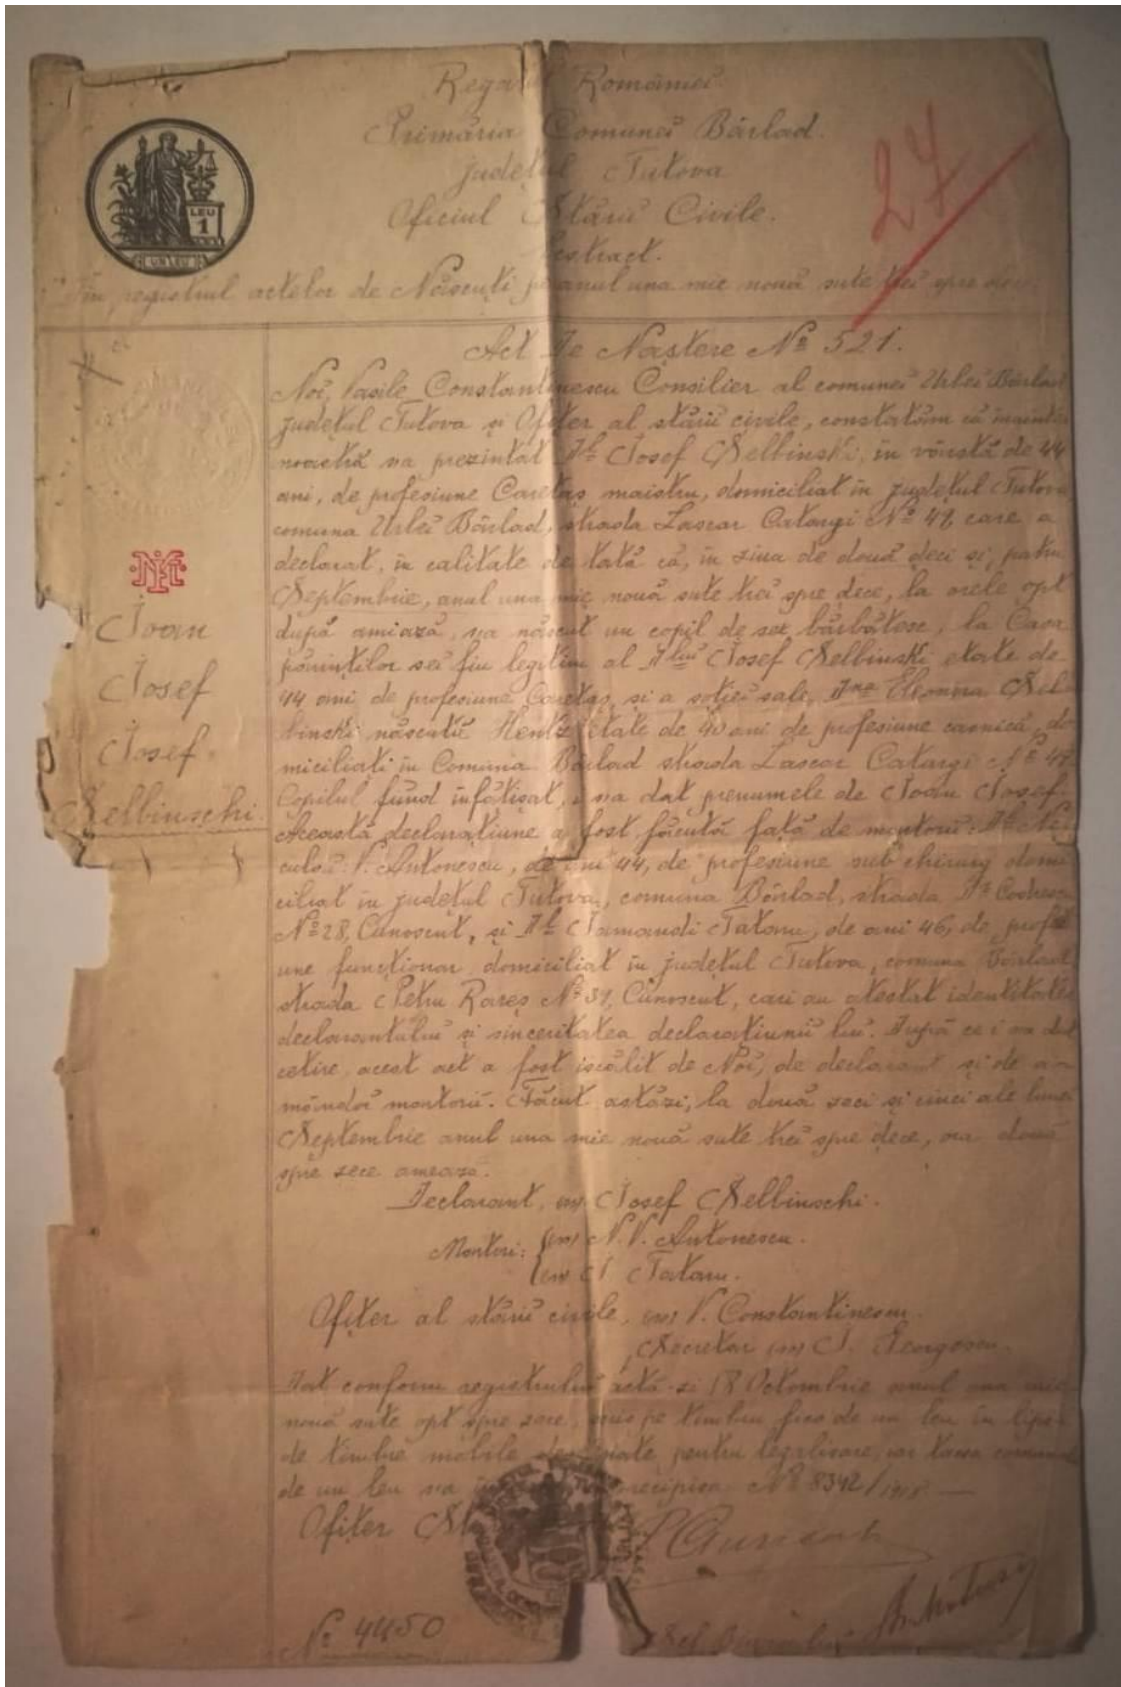 Regatul României.
Primăria Comunei Bârlad.
județul Tutova
Oficiul Stărei Civile.
Estract.
Din registrul actelor de Născuți pe anul una mie nouă sute trei spre dece.
27
LEU
1
UN LEU
Act de Naștere Nº 521.
Ioan
Iosef
Iosef
Selbinschi.
Noi, Vasile Constantinescu Consilier al comunei Urbei Bârlad
județul Tutova și Ofițer al stării civile, constatăm că înaintea
noastră s'a prezintat Dl Iosef Selbinski, în vârstă de 44
ani, de profesiune Caretaș maistru, domiciliat în județul Tutova
comuna Urbei Bârlad, strada Lascar Catargi Nº 49 care a
declarat, în calitate de tată că, în ziua de două deci și patru
Septembrie, anul una mie nouă sute trei spre dece, la orele opt
după amiază, s'a născut un copil de sex bărbătesc, la Casa
părinților sei fiu legitim al Dlui Iosef Selbinski etate de
44 ani de profesiune Caretaș, și a soției sale, Dna Eleonora Sel-
binski născută Hentz etate de 40 ani de profesiune casnică, do
miciliați în Comuna Bârlad strada Lascar Catargi Nº 49
Copilul fiind înfățișat, i s'a dat prenumele de Ioan Iosef.
Această declarațiune a fost făcută față de martorii: Dl Ne
culai V. Antonescu, de ani 44, de profesiune sub chirurg domi
ciliat în județul Tutova, comuna Bârlad, strada Dr Codrescu
Nº 28, Cunoscut, și Dl Iamandi Tatanu, de ani 46, de profesi
une funcționar domiciliat în județul Tutova, comuna Bârlad
strada Petru Rareș Nº 39, Cunoscut, cari au atestat identitatea
declarantului și sinceritatea declarațiunii lui. După ce i s'a dat
cetire, acest act a fost iscălit de Noi, de declarant și de a-
mândoi martorii. Făcut astăzi, la două zeci și cinci ale lunei
Septembrie anul una mie nouă sute trei spre dece, ora două
spre zece ameazi.
Declarant, (ss) Iosef Selbinschi.
Martori: (ss) N. V. Antonescu.
(ss) I. Tatanu.
Ofițer al stării civile, (ss) V. Constantinescu.
Secretar (ss) I. Georgescu.
Dat conform registrului astă-zi 18 Octombrie anul una mie
nouă sute opt spre zece, pe timbru fix de un leu în lipsă
de timbre mobile pentru legalisare, iar taxa comunală
de un leu s'a recipisa Nº 8342/1918.
Ofițer
Nº 4450